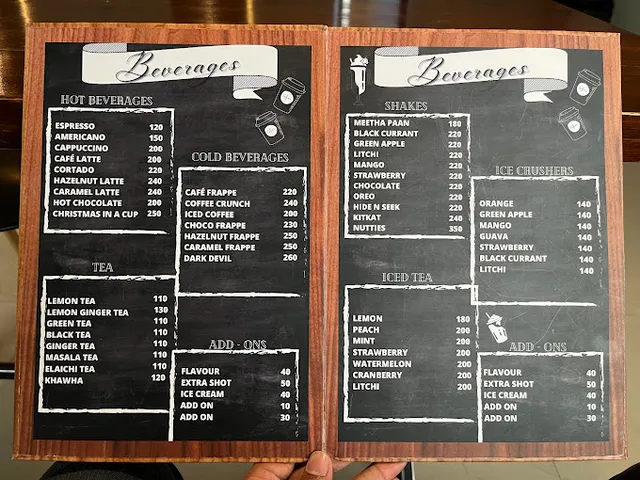 Beverages
HOT BEVERAGES
ESPRESSO 120
AMERICANO 150
CAPPUCCINO 200
CAFÉ LATTE 200
CORTADO 220
HAZELNUT LATTE 240
CARAMEL LATTE 240
HOT CHOCOLATE 200
CHRISTMAS IN A CUP 250
TEA
LEMON TEA 110
LEMON GINGER TEA 130
GREEN TEA 110
BLACK TEA 110
GINGER TEA 110
MASALA TEA 110
ELAICHI TEA 110
KHAWHA 120
COLD BEVERAGES
CAFÉ FRAPPE 220
COFFEE CRUNCH 240
ICED COFFEE 200
CHOCO FRAPPE 230
HAZELNUT FRAPPE 250
CARAMEL FRAPPE 250
DARK DEVIL 260
ADD - ONS
FLAVOUR 40
EXTRA SHOT 50
ICE CREAM 40
ADD ON 10
ADD ON 30
Beverages
SHAKES
MEETHA PAAN 180
BLACK CURRANT 220
GREEN APPLE 220
LITCHI 220
MANGO 220
STRAWBERRY 220
CHOCOLATE 220
OREO 220
HIDE N SEEK 220
KITKAT 240
NUTTIES 350
ICED TEA
LEMON 180
PEACH 200
MINT 200
STRAWBERRY 200
WATERMELON 200
CRANBERRY 200
LITCHI 200
ICE CRUSHERS
ORANGE 140
GREEN APPLE 140
MANGO 140
GUAVA 140
STRAWBERRY 140
BLACK CURRANT 140
LITCHI 140
ADD - ONS
FLAVOUR 40
EXTRA SHOT 50
ICE CREAM 40
ADD ON 10
ADD ON 30